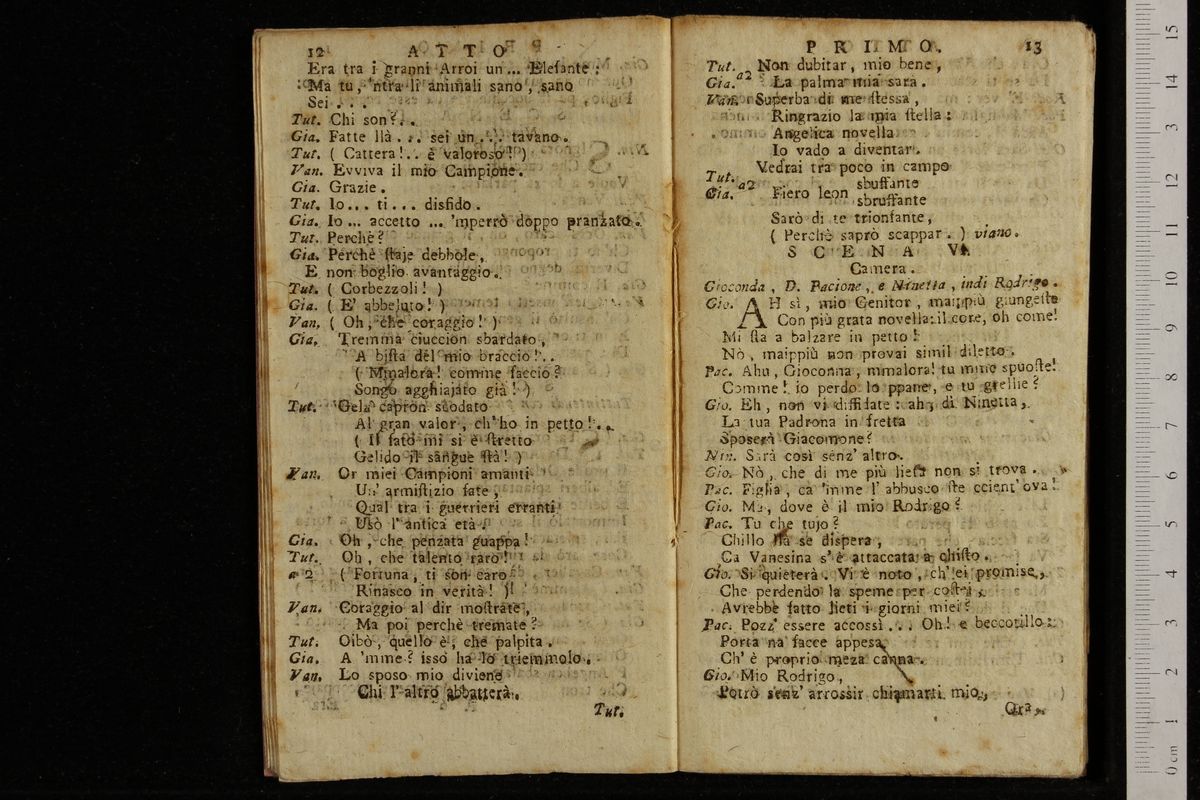 12 ATTO
Era tra i granni Arroi un... Elefante:
Ma tu, 'ntra li animali sano, sano
Sei...
Tut. Chi son?..
Gia. Fatte llà... sei un... tavano.
Tut. ( Cattera!.. è valoroso! )
Van. Evviva il mio Campione.
Gia. Grazie.
Tut. Io... ti... disfido.
Gia. Io... accetto... 'mperrò doppo pranzato.
Tut. Perchè?
Gia. Perchè ſtaje debbole,
E non boglio avantaggio.
Tut. ( Corbezzoli! )
Gia. ( E' abbeluto! )
Van. ( Oh, che coraggio! )
Gia. Tremma ciuccion sbardato,
A biſta del mio braccio!..
( Mmalora! comme faccio?
Songo agghiajato già! )
Tut. Gela capron scodato
Al gran valor, ch'ho in petto!..
( Il fato mi si è ſtretto
Gelido il sangue ſtà! )
Van. Or miei Campioni amanti
Un' armiſtizio fate,
Qual tra i guerrieri erranti
Usò l' antica età!
Gia. Oh, che penzata guappa!
Tut. Oh, che talento raro!
a 2 ( Fortuna, ti son caro
Rinasco in verità! )
Van. Coraggio al dir moſtrate,
Ma poi perchè tremate?
Tut. Oibò, quello è, che palpita.
Gia. A 'mme? isso ha lo triemmolo.
Van. Lo sposo mio diviene
Chi l' altro abbatterà.
Tut.
PRIMO. 13
Tut. Non dubitar, mio bene,
Gia. a2 La palma mia sarà.
Van. Superba di me ſtessa,
Ringrazio la mia ſtella:
Angelica novella
Io vado a diventar.
Vedrai tra poco in campo
Tut. sbuffante
Gia. a2 Fiero leon sbruffante
Sarò di te trionfante,
( Perchè saprò scappar. ) viano.
SCENA VI.
Camera.
Gioconda, D. Pacione, e Ninetta, indi Rodrigo.
Gio. AH sì, mio Genitor, maippiù giungeſte
Con più grata novella: il core, oh come!
Mi ſta a balzare in petto!
Nò, maippiù non provai simil diletto.
Pac. Ahu, Gioconna, mmalora! tu mme spuoſte!
Comme! io perdo lo ppane, e tu grellie?
Gio. Eh, non vi diffidate: ah, di Ninetta,
La tua Padrona in fretta
Sposerà Giacomone?
Nin. Sarà così senz' altro.
Gio. Nò, che di me più lieta non si trova.
Pac. Figlia, ca 'mme l' abbusco ſte ccient' ova!
Gio. Ma, dove è il mio Rodrigo?
Pac. Tu che tujo?
Chillo ſta se dispera,
Ca Vanesina s' è attaccata a chiſto.
Gio. Si quieterà. Vi è noto, ch' ei promise,
Che perdendo la speme per coſtei,
Avrebbe fatto lieti i giorni miei?
Pac. Pozz' essere accossì... Oh! e beccotillo:
Porta na facce appesa,
Ch' è proprio meza canna.
Gio. Mio Rodrigo,
Potrò senz' arrossir chiamarti mio,
Ora,